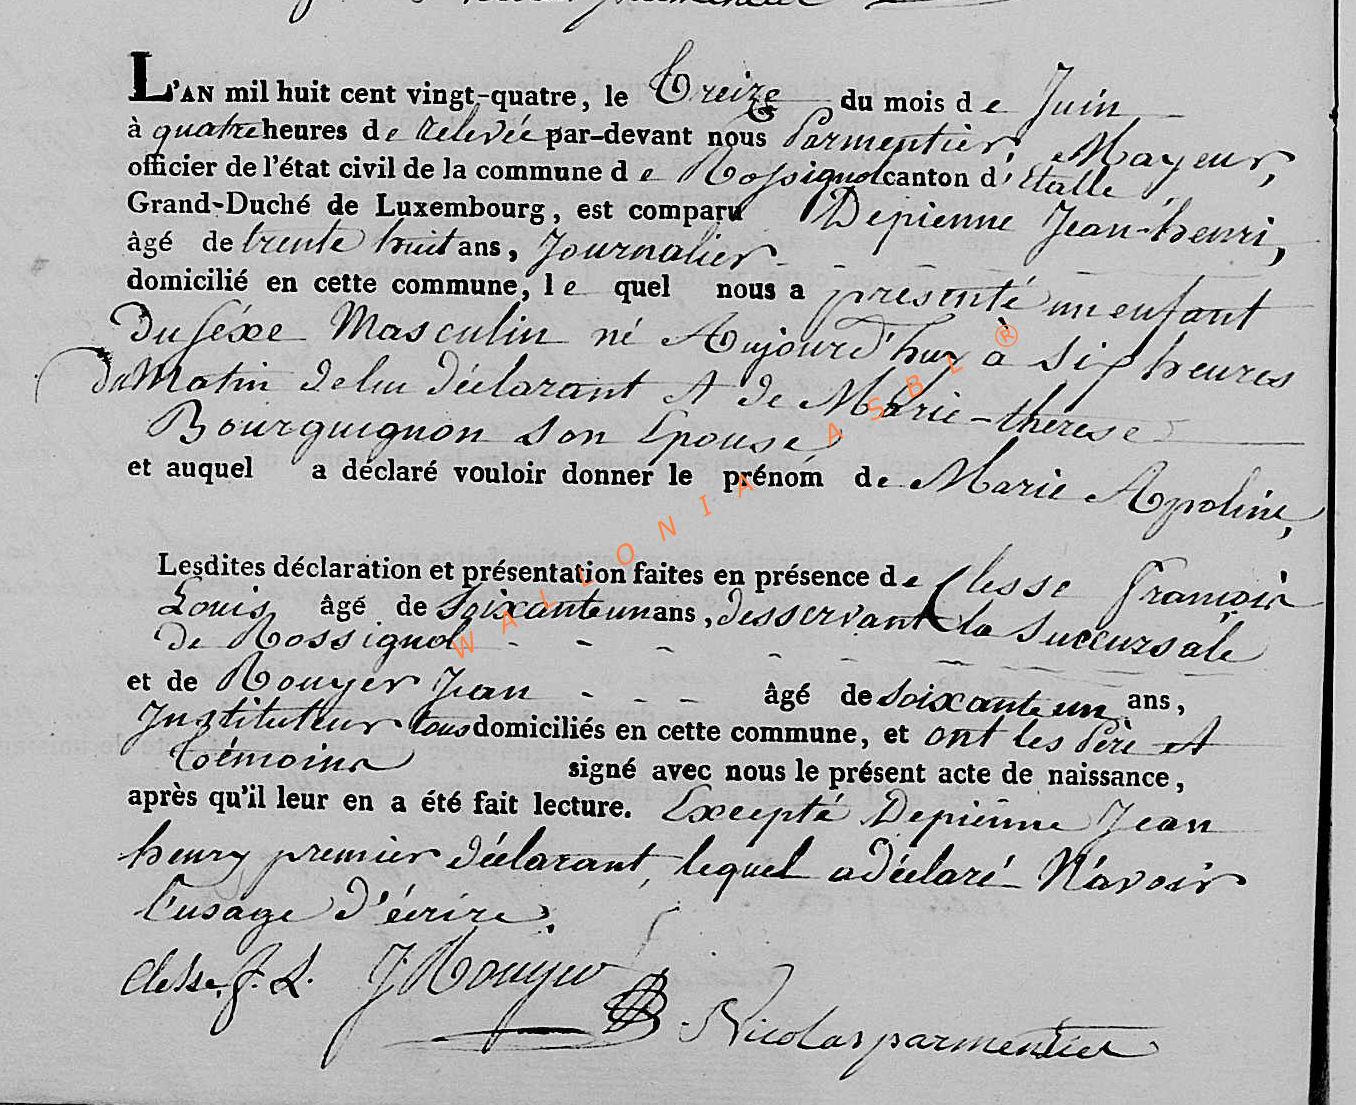 L'AN mil huit cent vingt-quatre, le Treize du mois de Juin
à quatre heures de relevée par-devant nous Parmentier, Mayeur,
officier de l'état civil de la commune de Rossignol canton d'Etalle,
Grand-Duché de Luxembourg, est comparu Depienne Jean-henri,
âgé de trente huit ans, Journalier
domicilié en cette commune, le quel nous a présenté un enfant
du séxe Masculin né Aujourd'huy à six heures
du Matin de lui déclarant et de Marie-therese
Bourguignon son Epouse
et auquel a déclaré vouloir donner le prénom de Marie Apoline,
Lesdites déclaration et présentation faites en présence de Clesse François
Louis, âgé de soixante un ans, desservant la succursale
de Rossignol
et de Rouyer Jean âgé de soixante un ans,
Instituteur tous domiciliés en cette commune, et ont les Père et
témoins signé avec nous le présent acte de naissance,
après qu'il leur en a été fait lecture. Excepté Depienne Jean
henry premier déclarant, lequel a déclaré N'avoir
l'usage d'écrire.
Clesse, f. L. J Rouyer Nicolas parmentier
WALLONIA ASBL ®